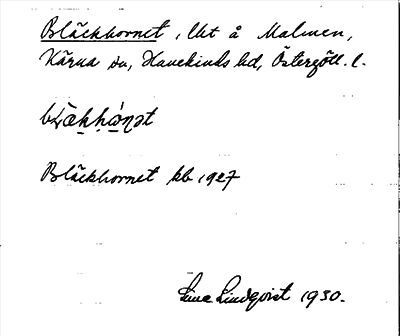 Bläckhornet, lht å Malmen,
Kärna sn, Hanekinds hd, Östergötl. l.
Bläckhornet kb 1927
Lindqvist 1930.